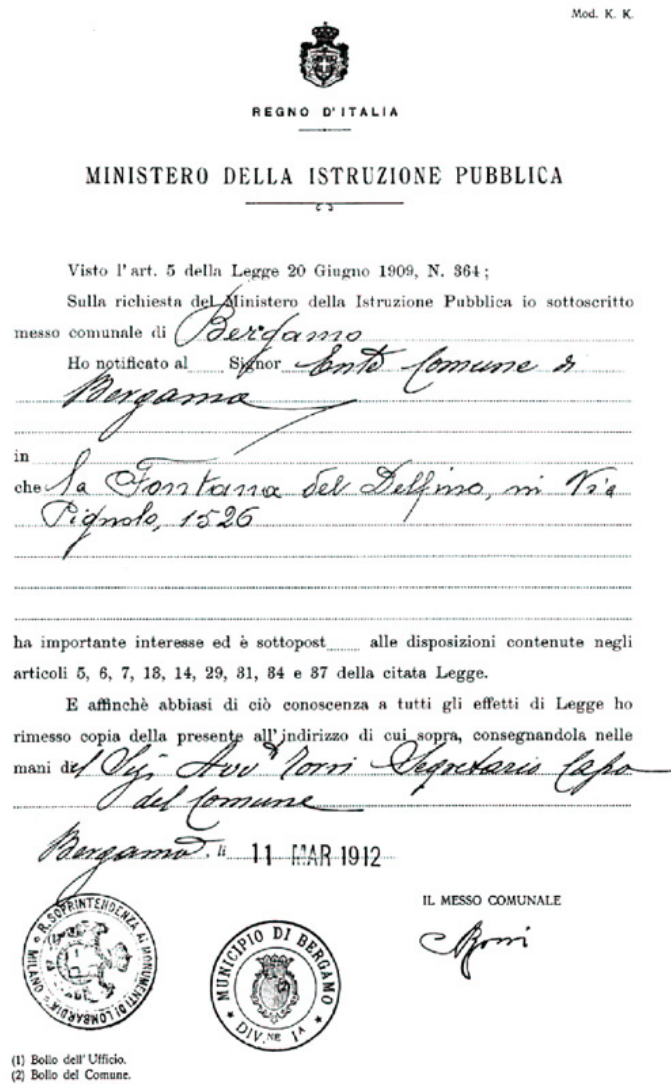 Mod. K. K.
REGNO D'ITALIA
MINISTERO DELLA ISTRUZIONE PUBBLICA
Visto l'art. 5 della Legge 20 Giugno 1909, N. 364;
Sulla richiesta del Ministero della Istruzione Pubblica io sottoscritto
messo comunale di Bergamo
Ho notificato al Signor Ente Comune di
Bergamo
in
che la Fontana del Delfino, in Via
Pignolo, 1526
ha importante interesse ed è sottopost alle disposizioni contenute negli
articoli 5, 6, 7, 13, 14, 29, 31, 34 e 37 della citata Legge.
E affinchè abbiasi di ciò conoscenza a tutti gli effetti di Legge ho
rimesso copia della presente all'indirizzo di cui sopra, consegnandola nelle
mani del Sig. Avv. Segretario Capo
del Comune
Bergamo, li 11 MAR 1912
IL MESSO COMUNALE
R. SOPRINTENDENZA AI MONUMENTI DI LOMBARDIA * MILANO *
MUNICIPIO DI BERGAMO * DIV.NE 1A *
(1) Bollo dell'Ufficio.
(2) Bollo del Comune.